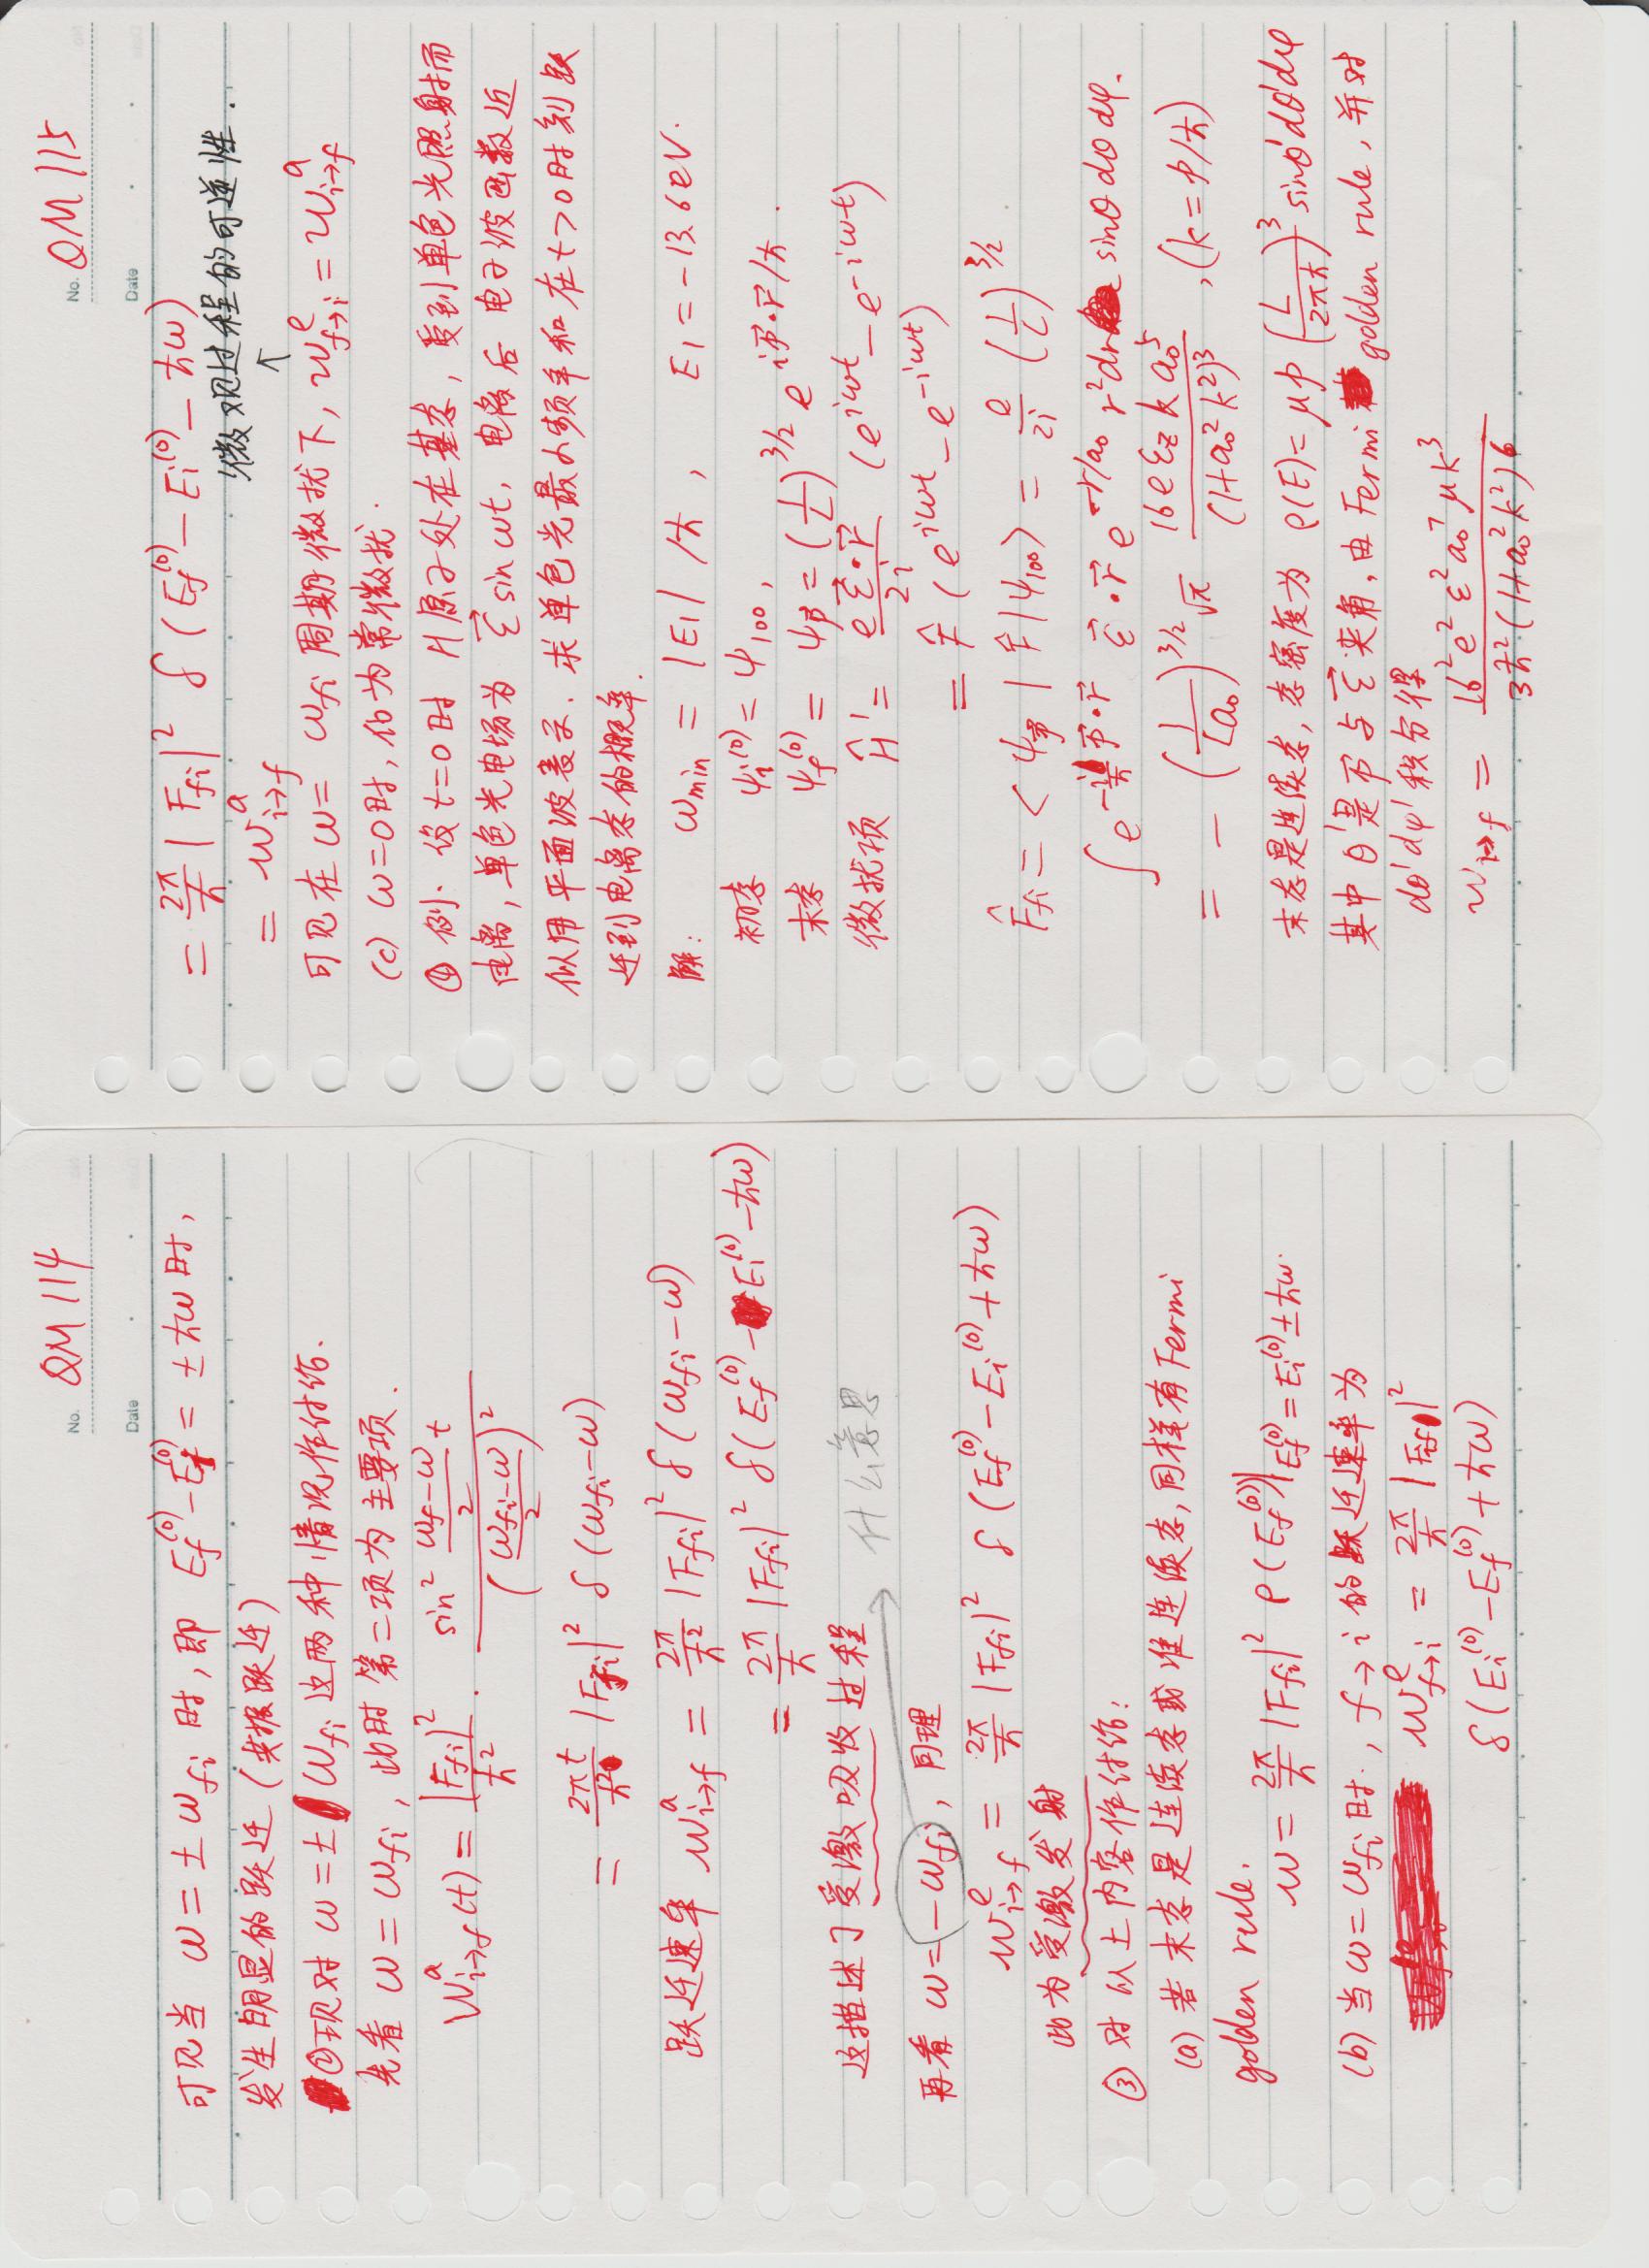 No. QM 114
Date
可见当 ω = ± ω_{fi} 时, 即 E_f^{(0)} - E_i^{(0)} = ± ħω 时,
发生明显的跃迁 (共振跃迁)
②现对 ω = ± ω_{fi} 这两种情况作讨论.
先看 ω = ω_{fi}, 此时第二项为主要项.
W^a_{i→f}(t) = |F_{fi}|²/ħ² · sin² (ω_f-ω)/2 t / ((ω_{fi}-ω)/2)²
= 2πt/ħ² |F_{fi}|² δ(ω_{fi}-ω)
跃迁速率 w^a_{i→f} = 2π/ħ² |F_{fi}|² δ(ω_{fi}-ω)
= 2π/ħ |F_{fi}|² δ(E_f^{(0)} - E_i^{(0)} - ħω)
这描述了受激吸收过程
什么意思
再看 ω = -ω_{fi}, 同理
w^e_{i→f} = 2π/ħ |F_{fi}|² δ(E_f^{(0)} - E_i^{(0)} + ħω)
此为受激发射
③ 对以上内容作讨论:
(a) 若末态是连续态或准连续态, 同样有 Fermi
golden rule.
w = 2π/ħ |F_{fi}|² ρ(E_f^{(0)})|_{E_f^{(0)} = E_i^{(0)} ± ħω}.
(b) 当 ω = ω_{fi} 时, f→i 的跃迁速率为
w^e_{f→i} = 2π/ħ |F_{if}|²
δ(E_i^{(0)} - E_f^{(0)} + ħω)
No. QM 115
Date
= 2π/ħ |F_{fi}|² δ(E_f^{(0)} - E_i^{(0)} - ħω)
微观过程的可逆性.
= w^a_{i→f}
↑
可见在 ω = ω_{fi} 周期微扰下, w^e_{f→i} = w^a_{i→f}
(c) ω=0时, 化为常微扰.
④ 例. 设 t=0 时 H原子处在基态, 受到单色光照射而
电离, 单色光电场为 ε⃗ sin ωt, 电离后电子波函数近
似用平面波表示. 求单色光最小频率和在 t>0 时刻跃
迁到电离态的概率.
解: ω_{min} = |E_1| /ħ , E_1 = -13.6eV.
初态 ψ_i^{(0)} = ψ_{100},
末态 ψ_f^{(0)} = ψ_{p⃗} = (1/L)^{3/2} e^{ip⃗·r⃗/ħ}.
微扰项 Ĥ' = eε⃗·r⃗/2i (e^{iωt} - e^{-iωt})
= F̂ (e^{iωt} - e^{-iωt})
F̂_{fi} = <ψ_{p⃗} | F̂ |ψ_{100}> = e/2i (1/L)^{3/2}
∫ e^{-i/ħ p⃗·r⃗} ε⃗·r⃗ e^{-r/a_0} r²dr sinθ dθ dφ.
= - (1/La_0)^{3/2} √π 16eε_z k a_0^5 / (1+a_0²k²)³ , (k = p/ħ)
末态是连续态, 态密度为 ρ(E) = μp (L/2πħ)³ sinθ'dθ'dφ
其中 θ' 是 p⃗ 与 ε⃗ 夹角, 由 Fermi golden rule, 并对
dθ'dφ' 积分得
w_{i→f} = 16²e²ε²a_0^7 μk³ / 3ħ²(1+a_0²k²)^6